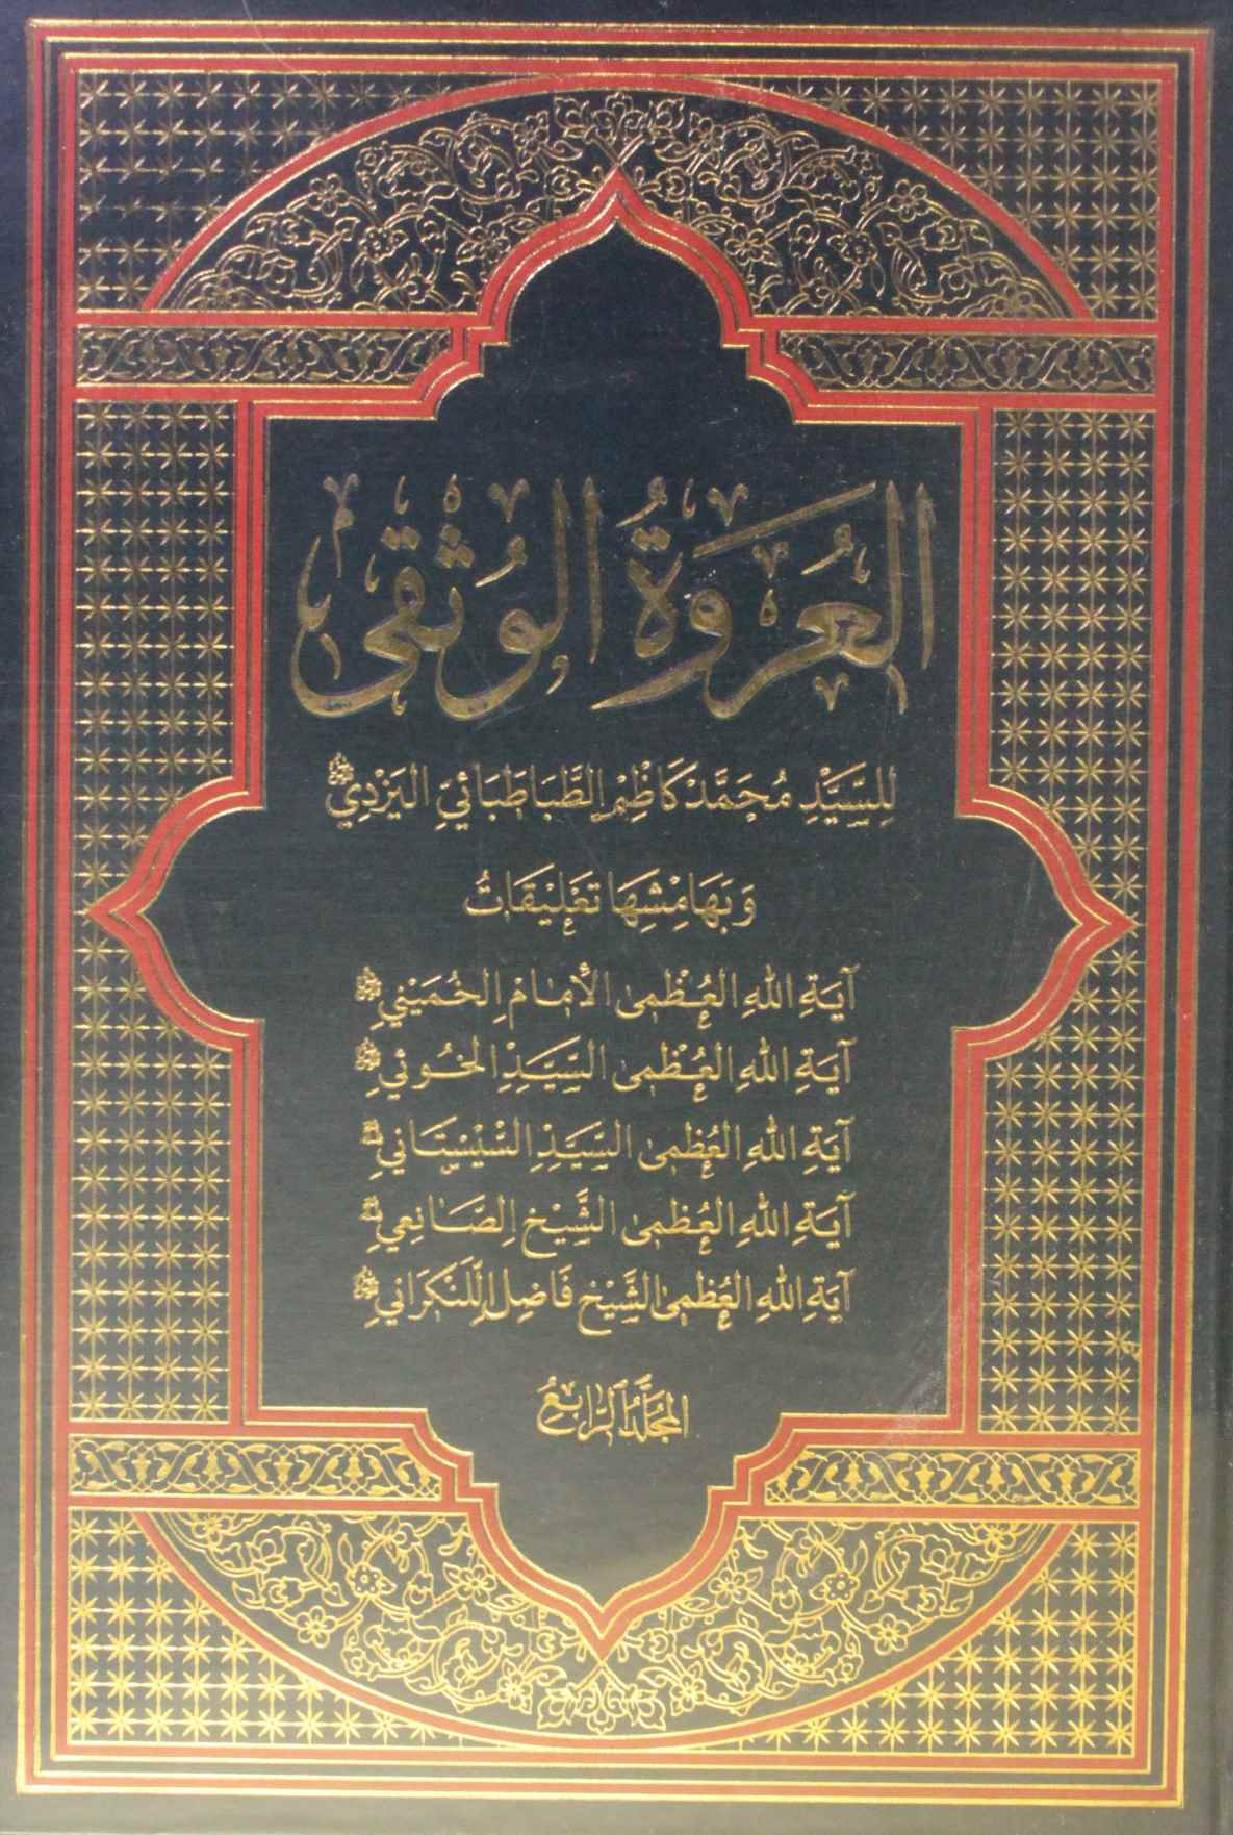 العُروَةُ الوُثقى
لِلسَّيِّدِ مُحَمَّد كَاظِمِ الطَّبَاطَبَائيِّ اليَزْدِيِّ
وَبِهَامِشِهَا تَعْلِيقَاتُ
آيَةِ اللهِ العُظْمى الأمَامِ الخُمَيْنيِ
آيَةِ اللهِ العُظْمى السَّيِّدِ الخُوئي
آيَةِ اللهِ العُظْمى السَّيِّدِ السِّيْسِتَاني
آيَةِ اللهِ العُظْمى الشَّيْخ الصَّانِعي
آيَةِ اللهِ العُظْمى الشَّيْخ فَاضِلِ اللَّنْكَرَاني
المُجَلَّدُ الرَّابِعُ